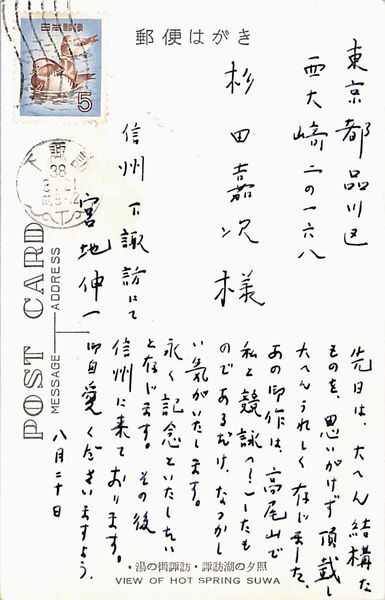 郵便はがき
日本郵便
5
下諏訪
38
東京都品川区
西大崎二の一六八
杉田嘉次様
信州下諏訪にて
宮地伸一
POST CARD
ADDRESS
MESSAGE
先日は、大へん結構な
ものを、思いがけず頂戴し
大へんうれしく存じました。
あの御作は、高尾山で
私と競詠へ!したも
のであるだけ、なつかし
い気がいたします。
永く記念といたしたい
と存じます。その後
信州に来ております。
御自愛くださいますよう。
八月二十日
・湯の街諏訪・諏訪湖の夕照
VIEW OF HOT SPRING SUWA